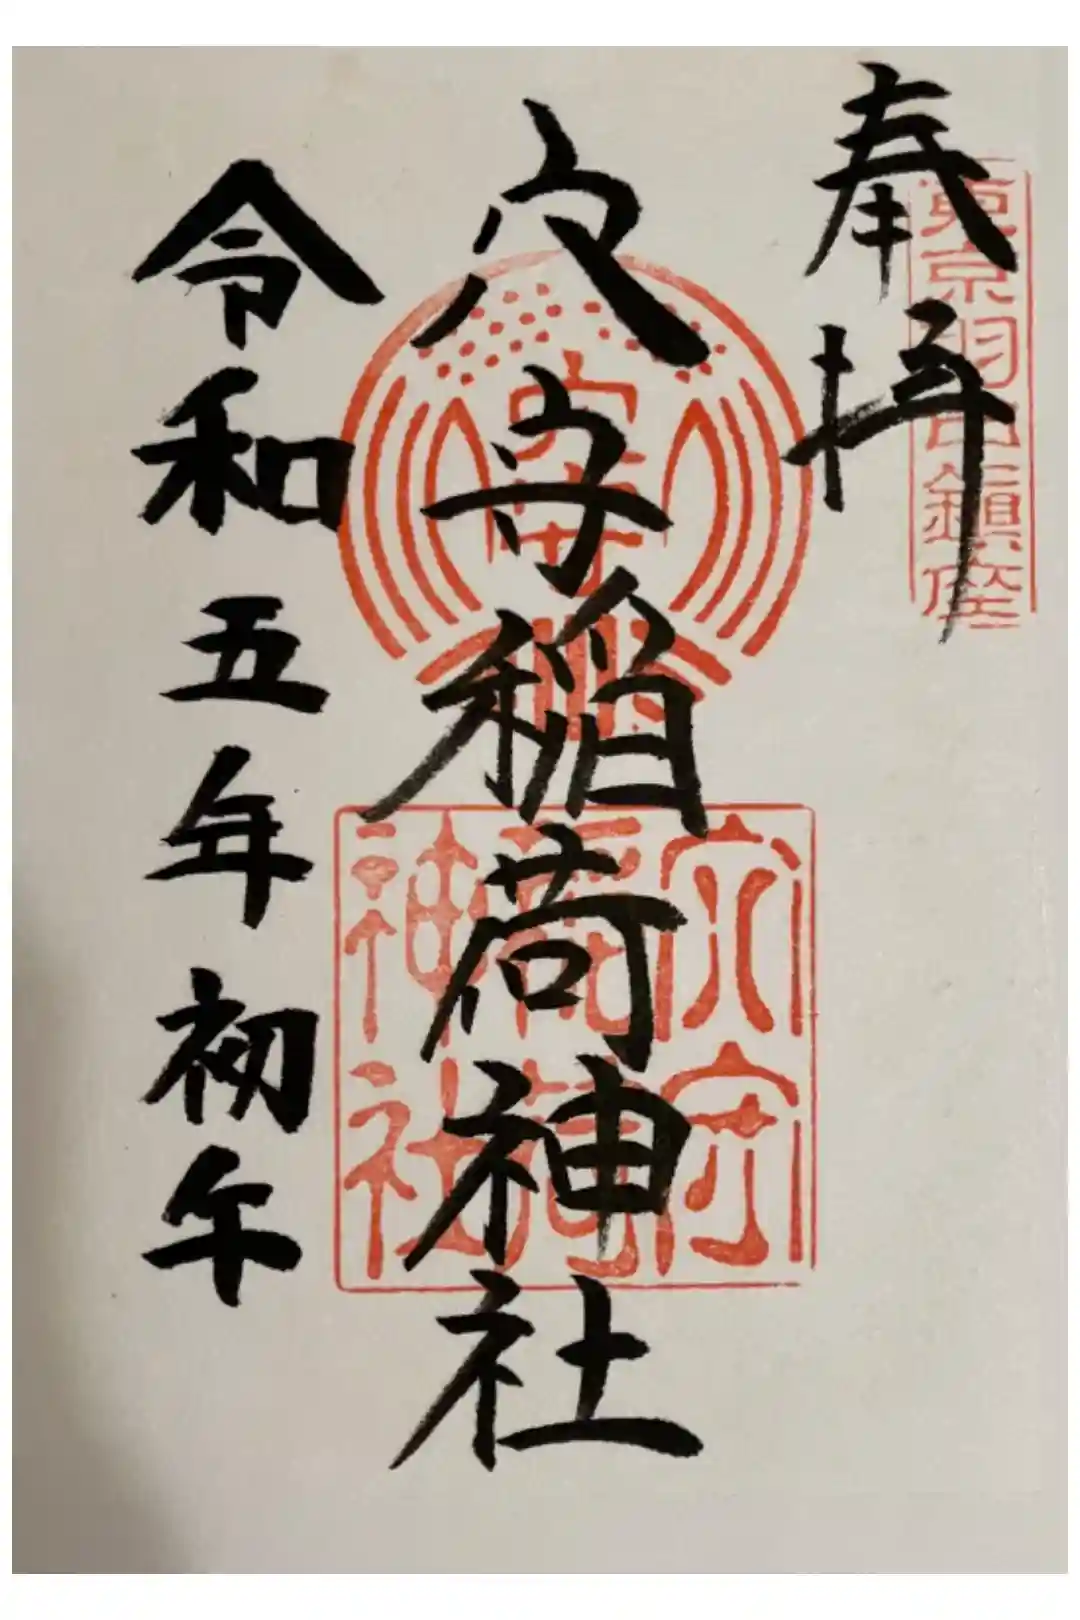 奉拝
東京羽田鎮座
穴守稲荷神社
穴守
穴守
稲荷
神社
令和五年初午